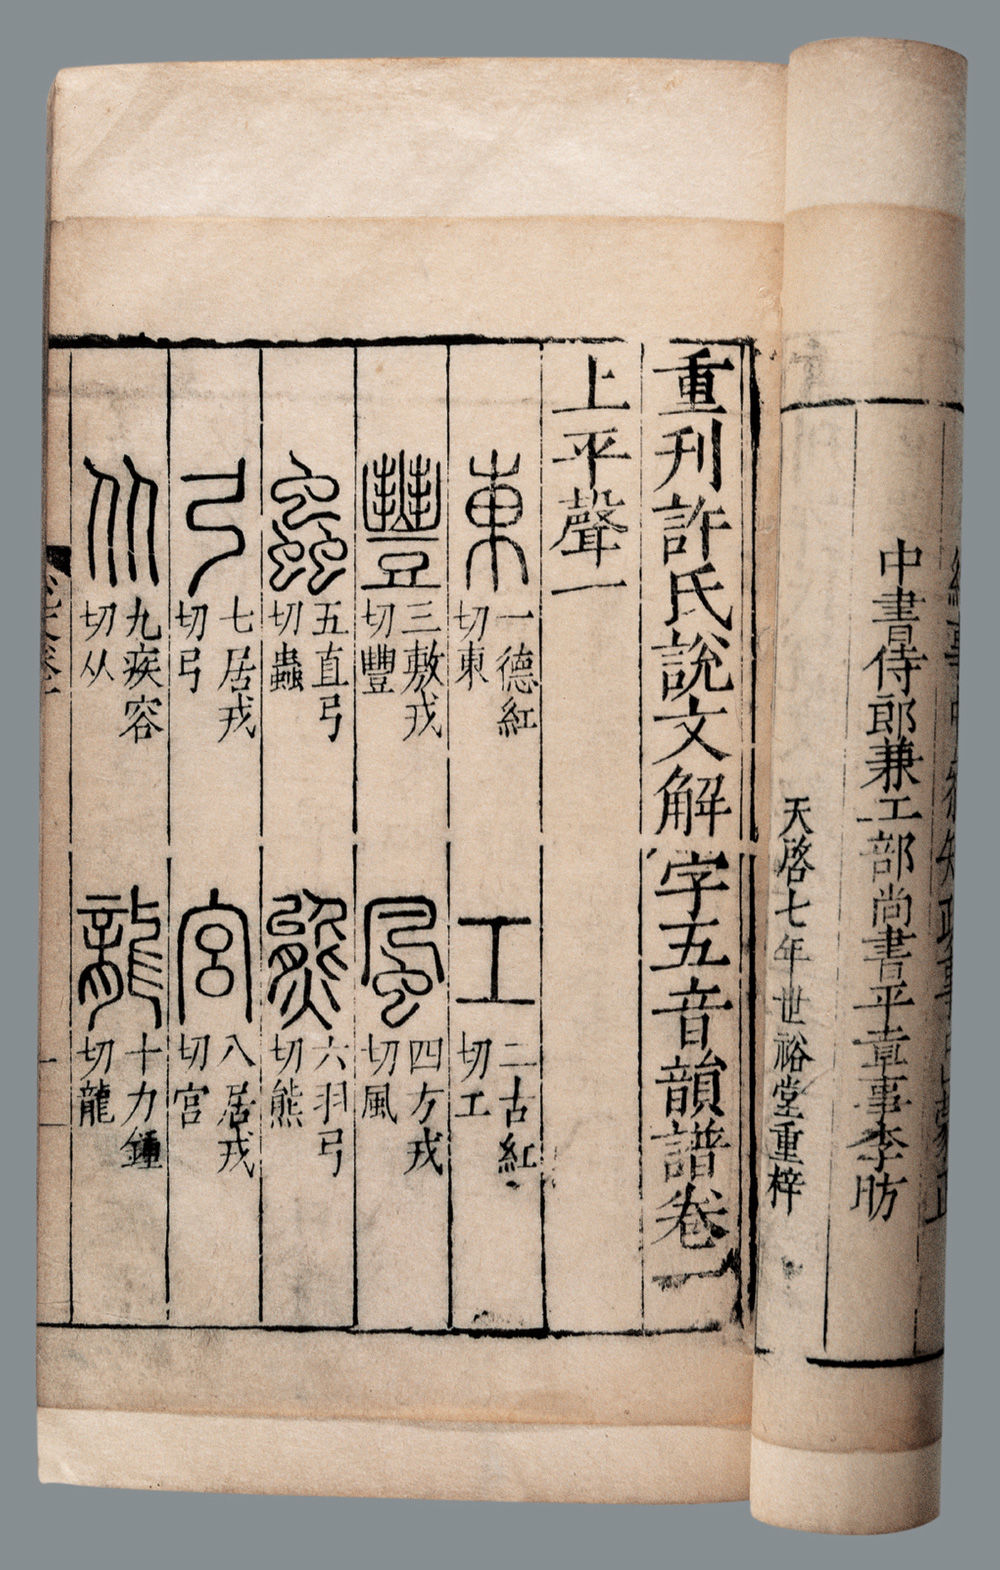 中書侍郎兼工部尚書平章事李昉
天啓七年世裕堂重梓
重刊許氏說文解字五音韻譜卷一
上平聲一
東
一德紅
切東
工
二古紅
切工
豐
三敷戎
切豐
風
四方戎
切風
蟲
五直弓
切蟲
熊
六羽弓
切熊
弓
七居戎
切弓
宮
八居戎
切宮
从
九疾容
切从
龍
十力鍾
切龍